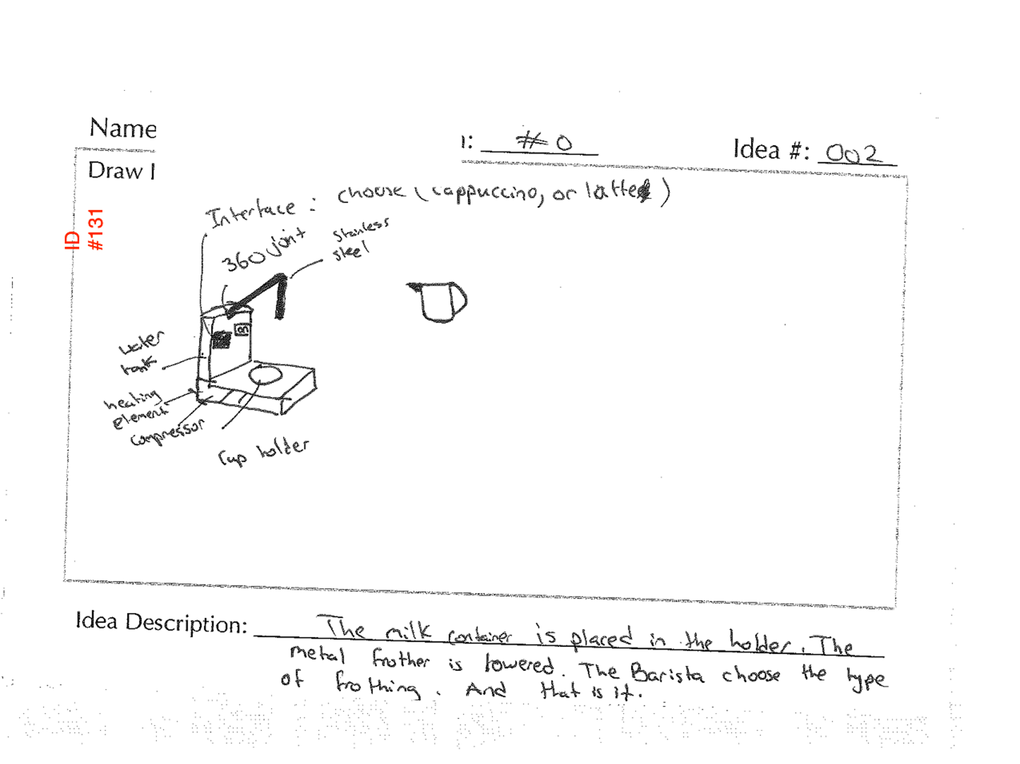 Name
ı: # 0
Idea #: 002
Draw I
ID
#131
Interface : choose (cappuccino, or latte)
360 joint
stainless
steel
on
water
tank
heating
element
compressor
Cup holder
Idea Description: The milk container is placed in the holder. The
metal frother is lowered. The Barista choose the type
of frothing. And that is it.